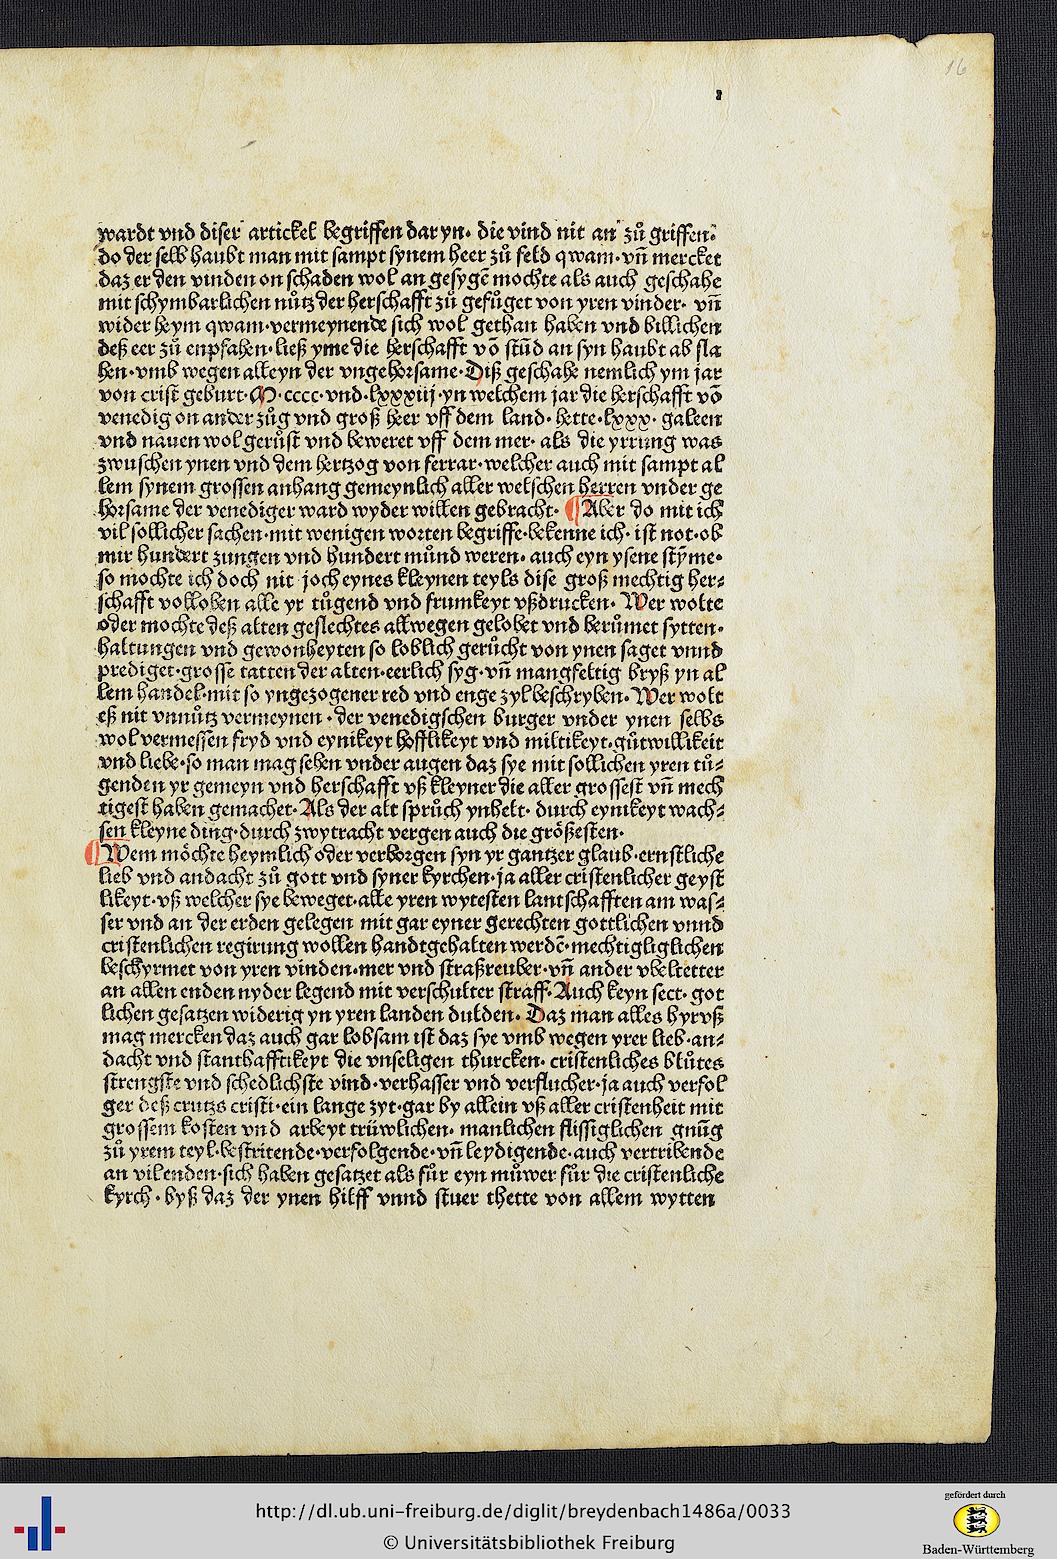 16
wardt vnd diser artickel begriffen dar yn· die vind nit an zů griffen·
do der selb haubt man mit sampt synem heer zů feld qwam· vn̄ mercket
daz er den vinden on schaden wol an gesygē mochte als auch geschahe
mit schymbarlichen nůtz der herschafft zů gefůget von yren vinder· vn̄
wider heym qwam· vermeynende sich wol gethan haben vnd billichen
deß eer zů enpfahen· ließ yme die herschafft vō stūd an syn haubt ab sla
hen· vmb wegen alleyn der vngehorsame· Diß geschahe nemlich ym jar
von crist geburt· M· cccc· vnd· lxxxiij· yn welchem jar die herschafft vō
venedig on ander zůg vnd groß heer vff dem land· hette· lxxx· galeen
vnd nauen wol gerůst vnd beweret vff dem mer· als die yrrung was
zwuschen ynen vnd dem hertzog von ferrar· welcher auch mit sampt al
lem synem grossen anhang gemeynlich aller welschen herren vnder ge
horsame der venediger ward wyder willen gebracht· ¶ Aber do mit ich
vil sollicher sachen· mit wenigen worten begriffe· bekenne ich· ist not· ob
mir hundert zungen vnd hundert můnd weren· auch eyn ysene stȳme·
so mochte ich doch nit joch eynes kleynen teyls dise groß mechtig her⸗
schafft volloben alle yr tůgend vnd frumkeyt vßdrucken· Wer wolte
oder mochte deß alten geslechtes allwegen gelobet vnd berůmet sytten·
haltungen vnd gewonheyten so loblich gerůcht von ynen saget vnnd
prediget· grosse tatten der alten· eerlich syg· vn̄ mangfeltig bryß yn al
lem handel· mit so yngezogener red vnd enge zyl beschryben· Wer wolt
eß nit vnnůtz vermeynen· der venedigschen burger vnder ynen selbs
wol vermessen fryd vnd eynikeyt hofflikeyt vnd miltikeyt· gůtwillikeit
vnd liebe· so man mag sehen vnder augen daz sye mit sollichen yren tů⸗
genden yr gemeyn vnd herschafft vß kleyner die aller grossest vn̄ mech
tigest haben gemachet· Als der alt sprůch ynhelt· durch eynikeyt wach⸗
sen kleyne ding· durch zwytracht vergen auch die grőßesten·
¶ Wem mőchte heymlich oder verborgen syn yr gantzer glaub· ernstliche
lieb vnd andacht zů gott vnd syner kyrchen· ja aller cristenlicher geyst
likeyt· vß welcher sye beweget· alle yren wytesten lantschafften am was⸗
ser vnd an der erden gelegen mit gar eyner gerechten gottlichen vnnd
cristenlichen regirung wollen handtgehalten werdē· mechtigliglichen
beschyrmet von yren vinden· mer vnd straßreuber· vn̄ ander vbeltetter
an allen enden nyder legend mit verschulter straff· Auch keyn sect· got
lichen gesatzen widerig yn yren landen dulden· Daz man alles hyrvß
mag mercken daz auch gar lobsam ist daz sye vmb wegen yrer lieb· an⸗
dacht vnd stanthafftikeyt die vnseligen thurcken· cristenliches blůtes
strengste vnd schedlichste vind· verhasser vnd verflucher· ja auch verfol
ger deß crutzs cristi· ein lange zyt· gar by allein vß aller cristenheit mit
grossem kosten vnd arbeyt trüwlichen· manlichen flissiglichen gnůg
zů yrem teyl· bestritende· verfolgende· vn̄ leydigende· auch vertribende
an vil enden· sich haben gesatzet als fůr eyn můwer fůr die cristenliche
kyrch· byß daz der ynen hilff vnnd stuer thette von allem wytten
http://dl.ub.uni-freiburg.de/diglit/breydenbach1486a/0033
© Universitätsbibliothek Freiburg
gefördert durch
Baden-Württemberg